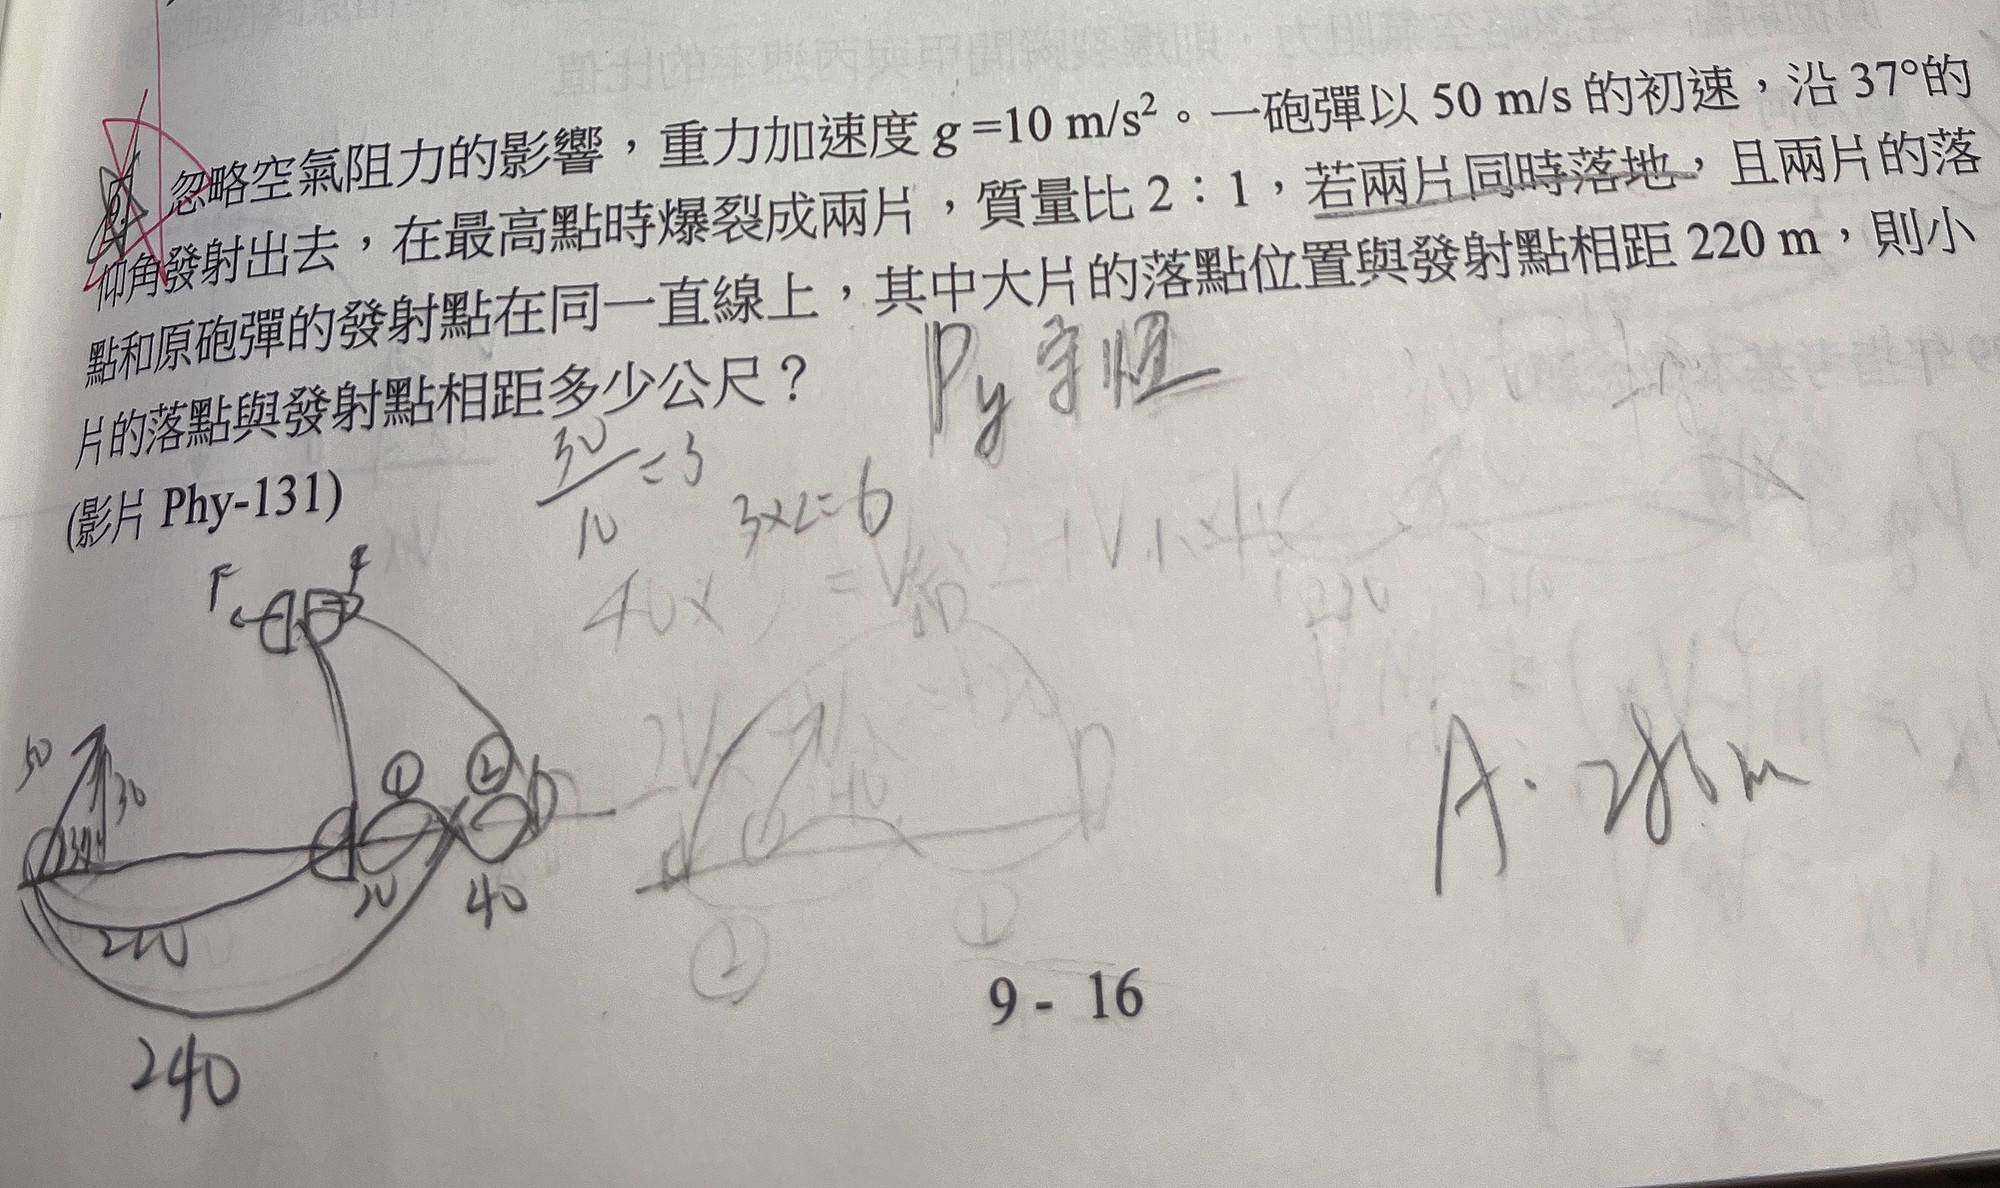 忽略空氣阻力的影響，重力加速度 g =10 m/s²。一砲彈以 50 m/s 的初速，沿 37°的
仰角發射出去，在最高點時爆裂成兩片，質量比 2：1，若兩片同時落地，且兩片的落
點和原砲彈的發射點在同一直線上，其中大片的落點位置與發射點相距 220 m，則小
片的落點與發射點相距多少公尺？
(影片 Phy-131)
Py 守恆
30/10 =3
3×2=6
40×
F
F
50
30
37°
①
②
20
40
220
240
②
①
A. 280m
9 - 16